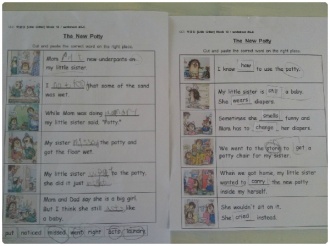 The New Potty
Cut and paste the correct word on the right place.
Mom puts new underpants on
my little sister.
I noticed that some of the sand
was wet!
While Mom was doing laundry
my little sister said, "Potty."
My sister missed the potty
and got the floor wet.
My little sister went to the potty
she did it just
Mom and Dad say she is a big girl.
But I think she still acts like
a baby.
put noticed missed went right acts
The New Potty
Cut and paste the correct word on the right place.
I know how to use the potty.
My little sister is still a baby.
She wears diapers.
Sometimes she smells funny and
Mom has to change her diapers.
We went to the store to get a
potty chair for my sister.
When we got home, my little sister
wanted to carry the new potty
inside by herself.
She wouldn't sit on it.
She cried instead.